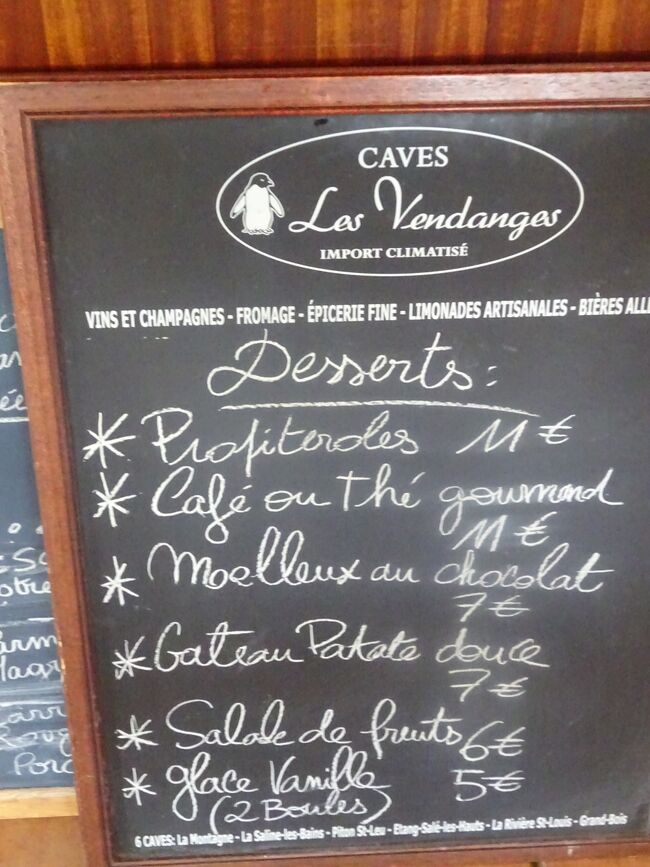 CAVES
Les Vendanges
IMPORT CLIMATISÉ
VINS ET CHAMPAGNES - FROMAGE - ÉPICERIE FINE - LIMONADES ARTISANALES - BIÈRES ALL
Desserts :
* Profiteroles 11 €
* Café ou thé gourmand
11 €
* Moelleux au chocolat
7 €
* Gateau Patate douce
7 €
* Salade de fruits 6 €
* Glace Vanille 5 €
(2 Boules)
6 CAVES: La Montagne - La Saline-les-Bains - Piton St-Leu - Etang-Salé-les-Hauts - La Rivière St-Louis - Grand-Bois